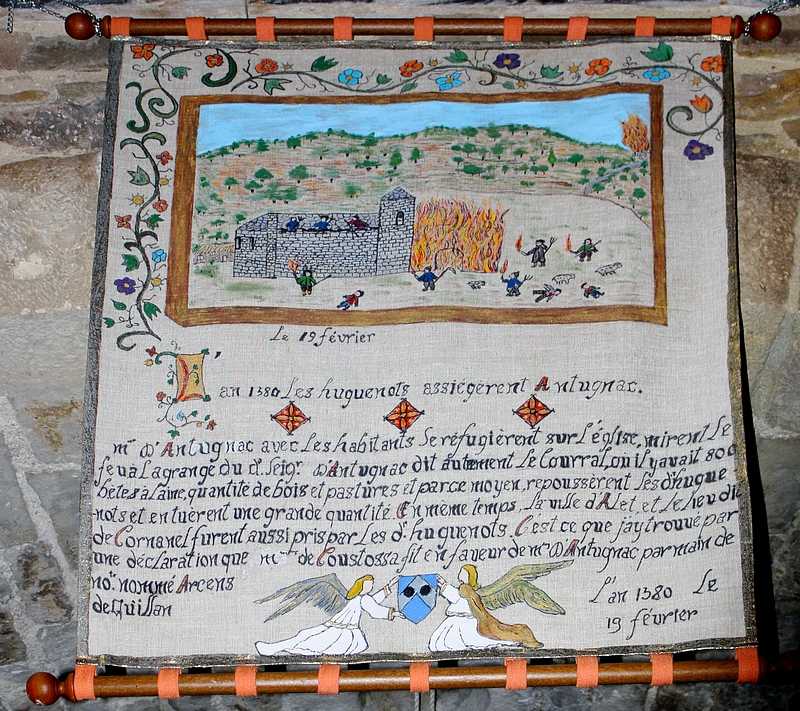 Le 19 février
L'an 1380 Les huguenots assiégèrent Antugnac.
mr D'Antugnac avec Les habitants se réfugièrent sur L'église, mirent Le
feu a La grange du dt. Seigr. d'Antugnac dit autement Le Courral, ou il y avait 800
bêtes a Laine, quantité de bois et pastures et par ce moyen, repoussèrent Les dt hugue
nots et en tuèrent une grande quantité. En même temps, La ville d'Alet, et Le lieu dit
de Cornanel furent aussi pris par Les dt. huguenots. C'est ce que j'ay trouvé par
une déclaration que de Coustossa fit en faveur de mr. D'Antugnac par main de
nore nommé Arcens
de Quillan
L'an 1380 Le
19 février